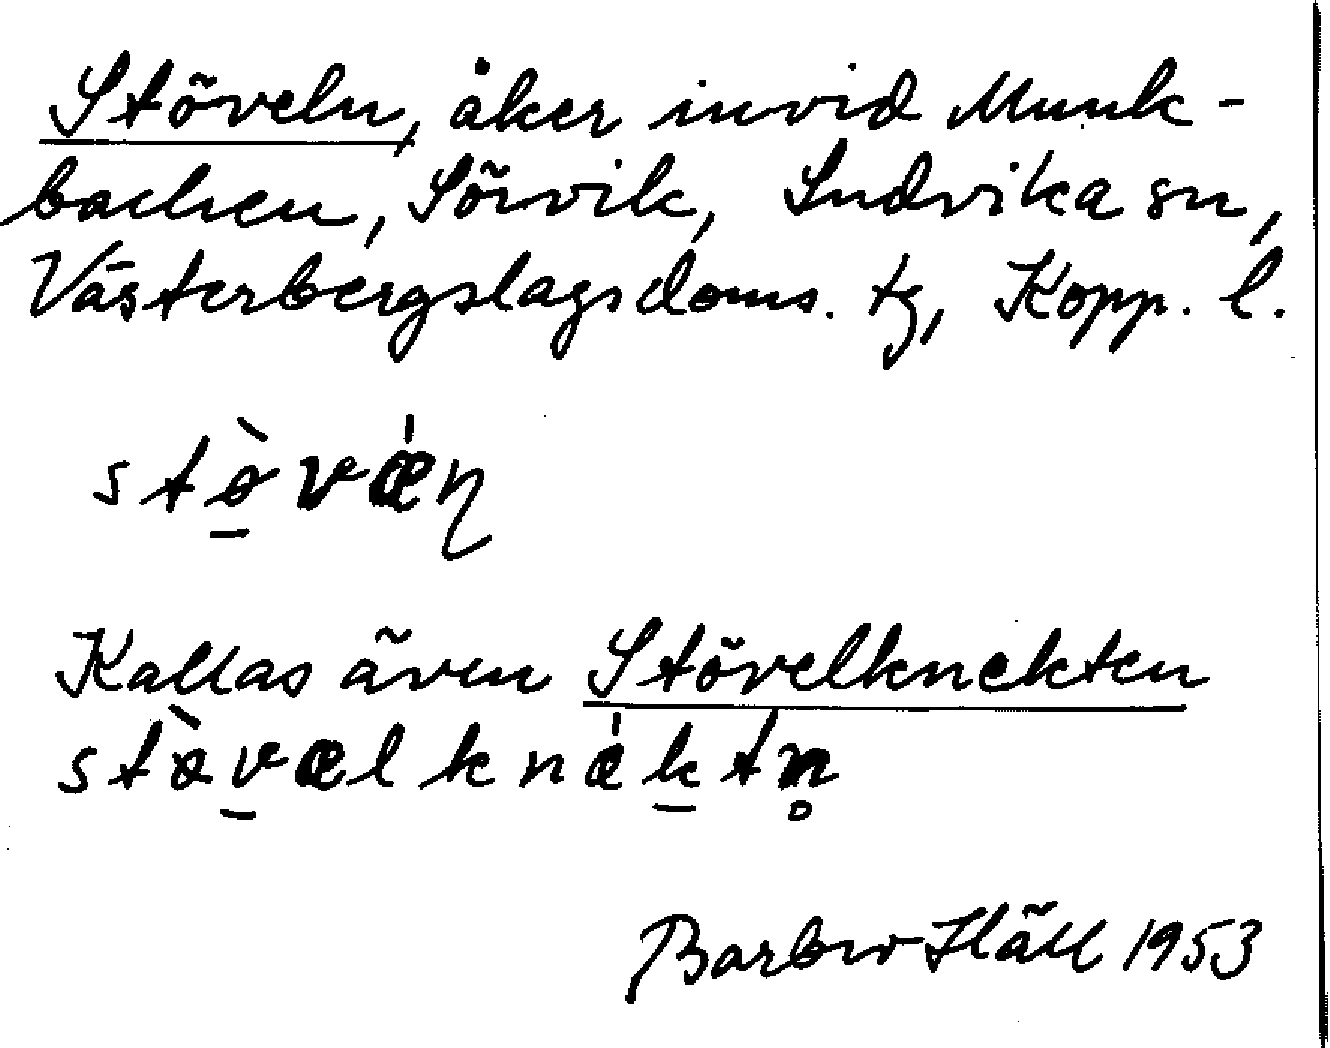 Stöveln, åker invid Munk-
backen, Sörvik, Ludvika sn,
Västerbergslags doms. tg, Kopp. l.
stø̀væ̍ɳ
Kallas även Stövelknektten
stø̀vælknæ̍ktn̥
Barbro Häll 1953